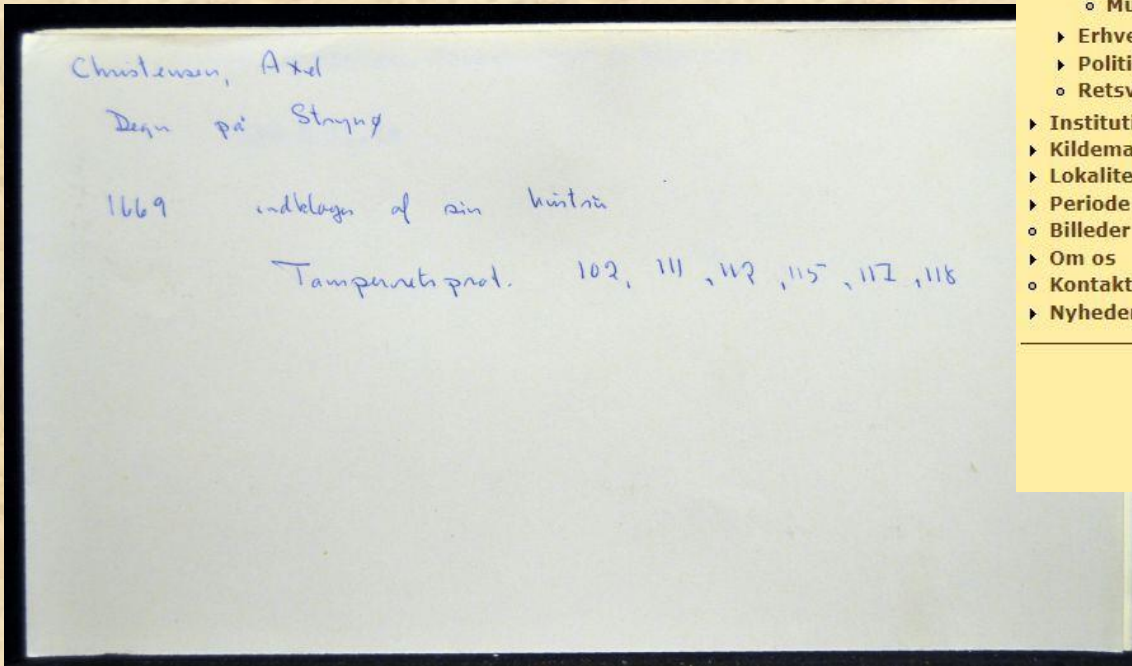 Christensen, Axel
Degn på Strynø
1669 indklages af sin hustru
Tamperretsprot. 102, 111, 112, 115, 117, 118
Mu
Erhve
Politi
Retsv
Instituti
Kildema
Lokalite
Periode
Billeder
Om os
Kontakt
Nyheder